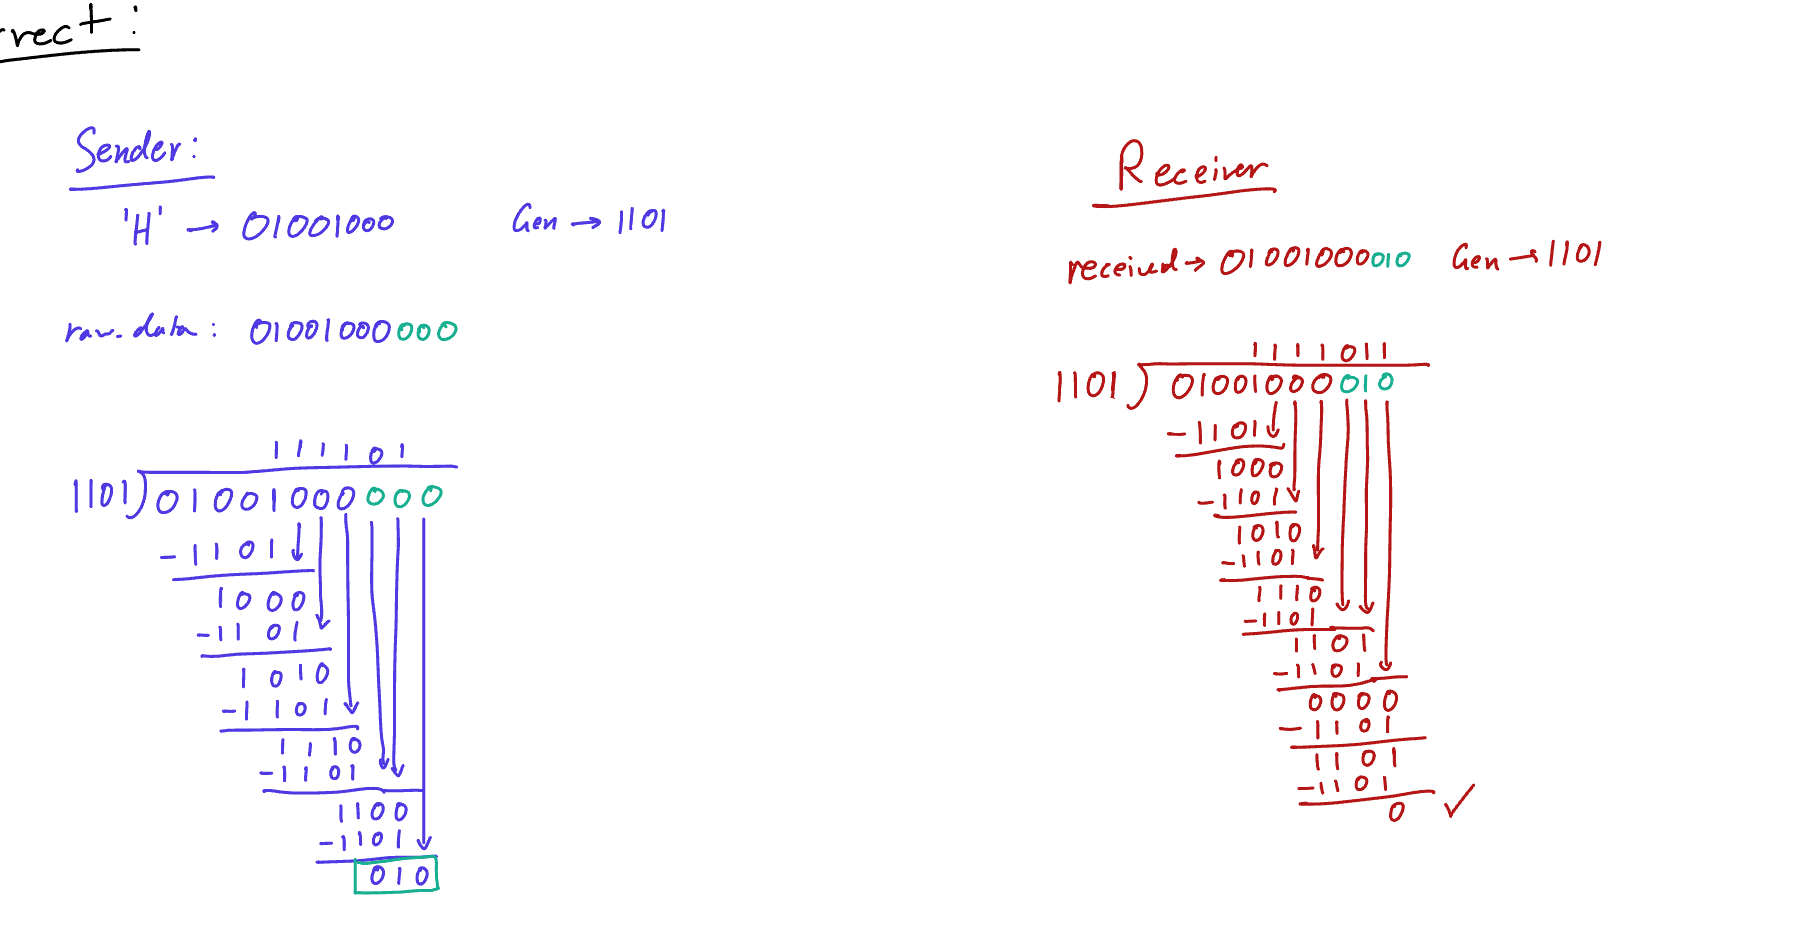 rrect:
Sender:
'H' → 01001000 Gen → 1101
raw.data: 01001000000
111101
1101)01001000000
-1101
1000
-1101
1010
-1101
1110
-1101
1100
-1101
010
Receiver
received → 01001000010 Gen → 1101
1111011
1101)01001000010
-1101
1000
-1101
1010
-1101
1110
-1101
1101
-1101
0000
-1101
1101
-1101
0 ✓